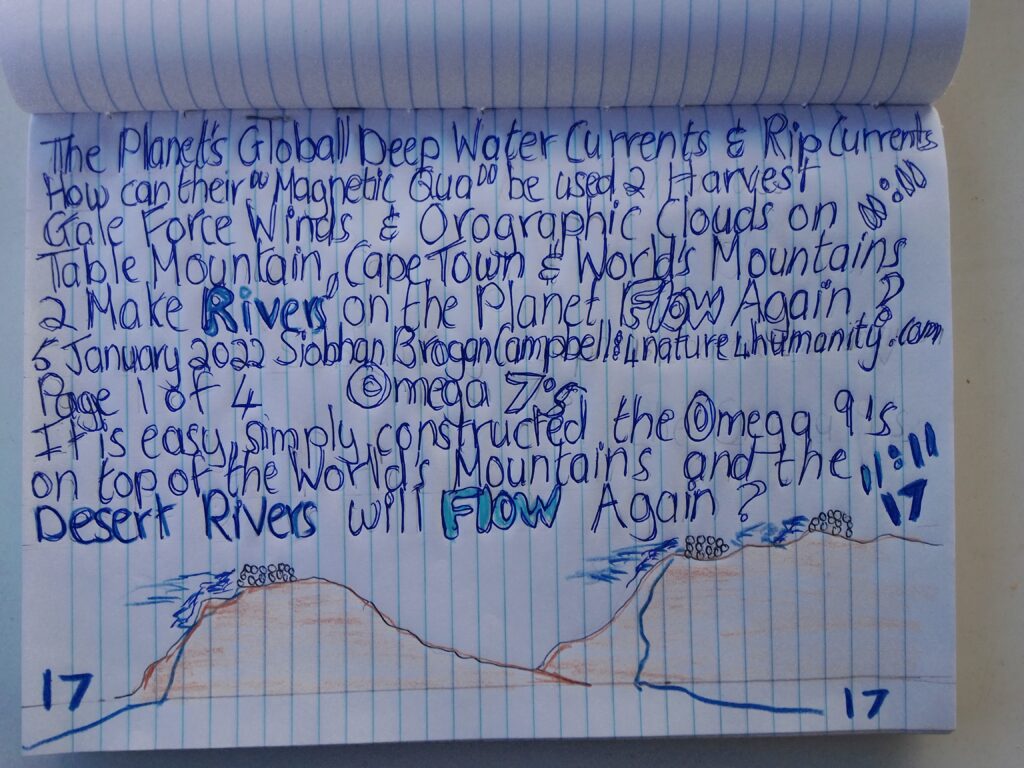 The Planet's Global Deep Water Currents & Rip Currents
How can their "Magnetic Qua" be used 2 Harvest
Gale Force Winds & Orographic Clouds on 00:00
Table Mountain, Cape Town & World's Mountains
2 Make Rivers on the Planet Flow Again?
5 January 2022 Siobhan Brogan Campbell:4nature4humanity.com
Page 1 of 4 Omega
It is easy, simply constructed the Omega 9's
on top of the World's Mountains and the 11:11
Desert Rivers will Flow Again? 17
17 17